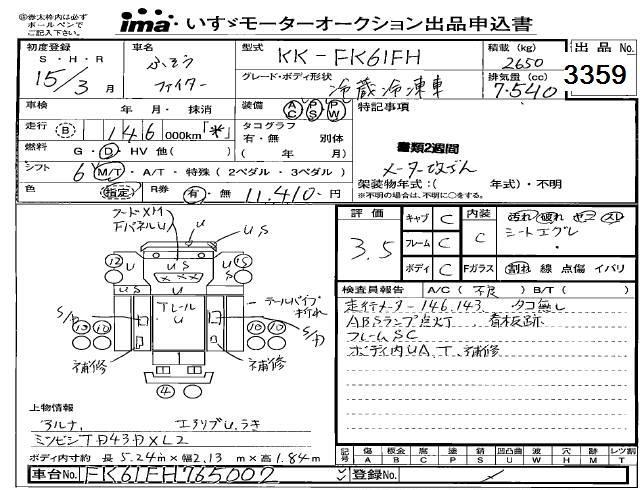 ㊟赤太枠内は必ず
ボールペンで
ご記入下さい。
ima いすゞモーターオークション出品申込書
初度登録 車名 型式 積載 (kg) 出品 No.
S・H・R ふそう KK-FK61FH 2650
15/3 月 ファイター グレード・ボディ形状 冷蔵冷凍車 排気量 (cc) 7.540 3359
車検 年 月・抹消 装備 AC PS PW 特記事項
走行 (B) 146 000km「*」 タコグラフ 有・無 別体
書類2週間
燃料 G・D・HV 他( ) ( 年 月)
メーター改ざん
シフト 6 M/T・A/T・特殊 (2ペダル・3ペダル) 架装物年式:( 年式)・不明
色 (指定) R券 有・無 11.410-円 ※不明の場合は、不明に○をする。
フードXM
FパネルU
U
US
評価 3.5
キャブ C 内装 C 汚れ 破れ
フレーム C シートエグレ
ボディ C Fガラス 割れ 線 点傷 イバリ
12 U US U 15
XX
US US
Tレール
U
テールパイプ
折れ
10 10 10 10
補修 補修
4 U
検査員報告 A/C (不良) B/T ( )
走行メーター146,143. タコ無し
ABSランプ点灯 看板跡
フレームSC
ボディ内UA.T.補修
上物情報
アルナ.
ミンビシTD43DXL2
ボディ内寸約 長 5.24m×幅 2.13 m×高 1.84m
記号 傷 A 板金 B 腐 C 塗 P 錆 S 凹凸曲 U 波 W 穴 H 跡 M レツ割 T
車台No. FK61FH765002 登録No.